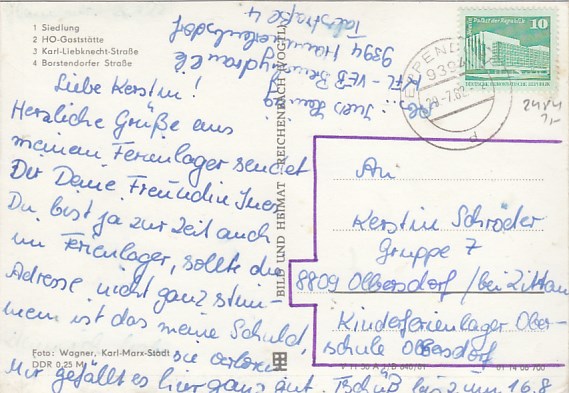 1 Siedlung
2 HO-Gaststätte
3 Karl-Liebknecht-Straße
4 Borstendorfer Straße
Liebe Kerstin!
Herzliche Grüße aus
meinem Ferienlager sendet
Dir Deine Freundin Ines
Du bist ja zur Zeit auch
im Ferienlager, sollte die
Adresse nicht ganz stim-
men ist das meine Schuld,
sie verloren
Mir gefällt es hier ganz gut. Tschüß bis zum 16.8
Foto: Wagner, Karl-Marx-Stadt
DDR 0,25 M
BILD UND HEIMAT REICHENBACH (VOGTL)
Abs.: Ines
KfL - VEB
9394
Talstraße 4
Palast der Republik
10
DDR
9394
29-7.82
An
Kerstin Schröder
Gruppe 7
8809 Olbersdorf / bei Zittau
Kinderferienlager Ober-
schule Olbersdorf